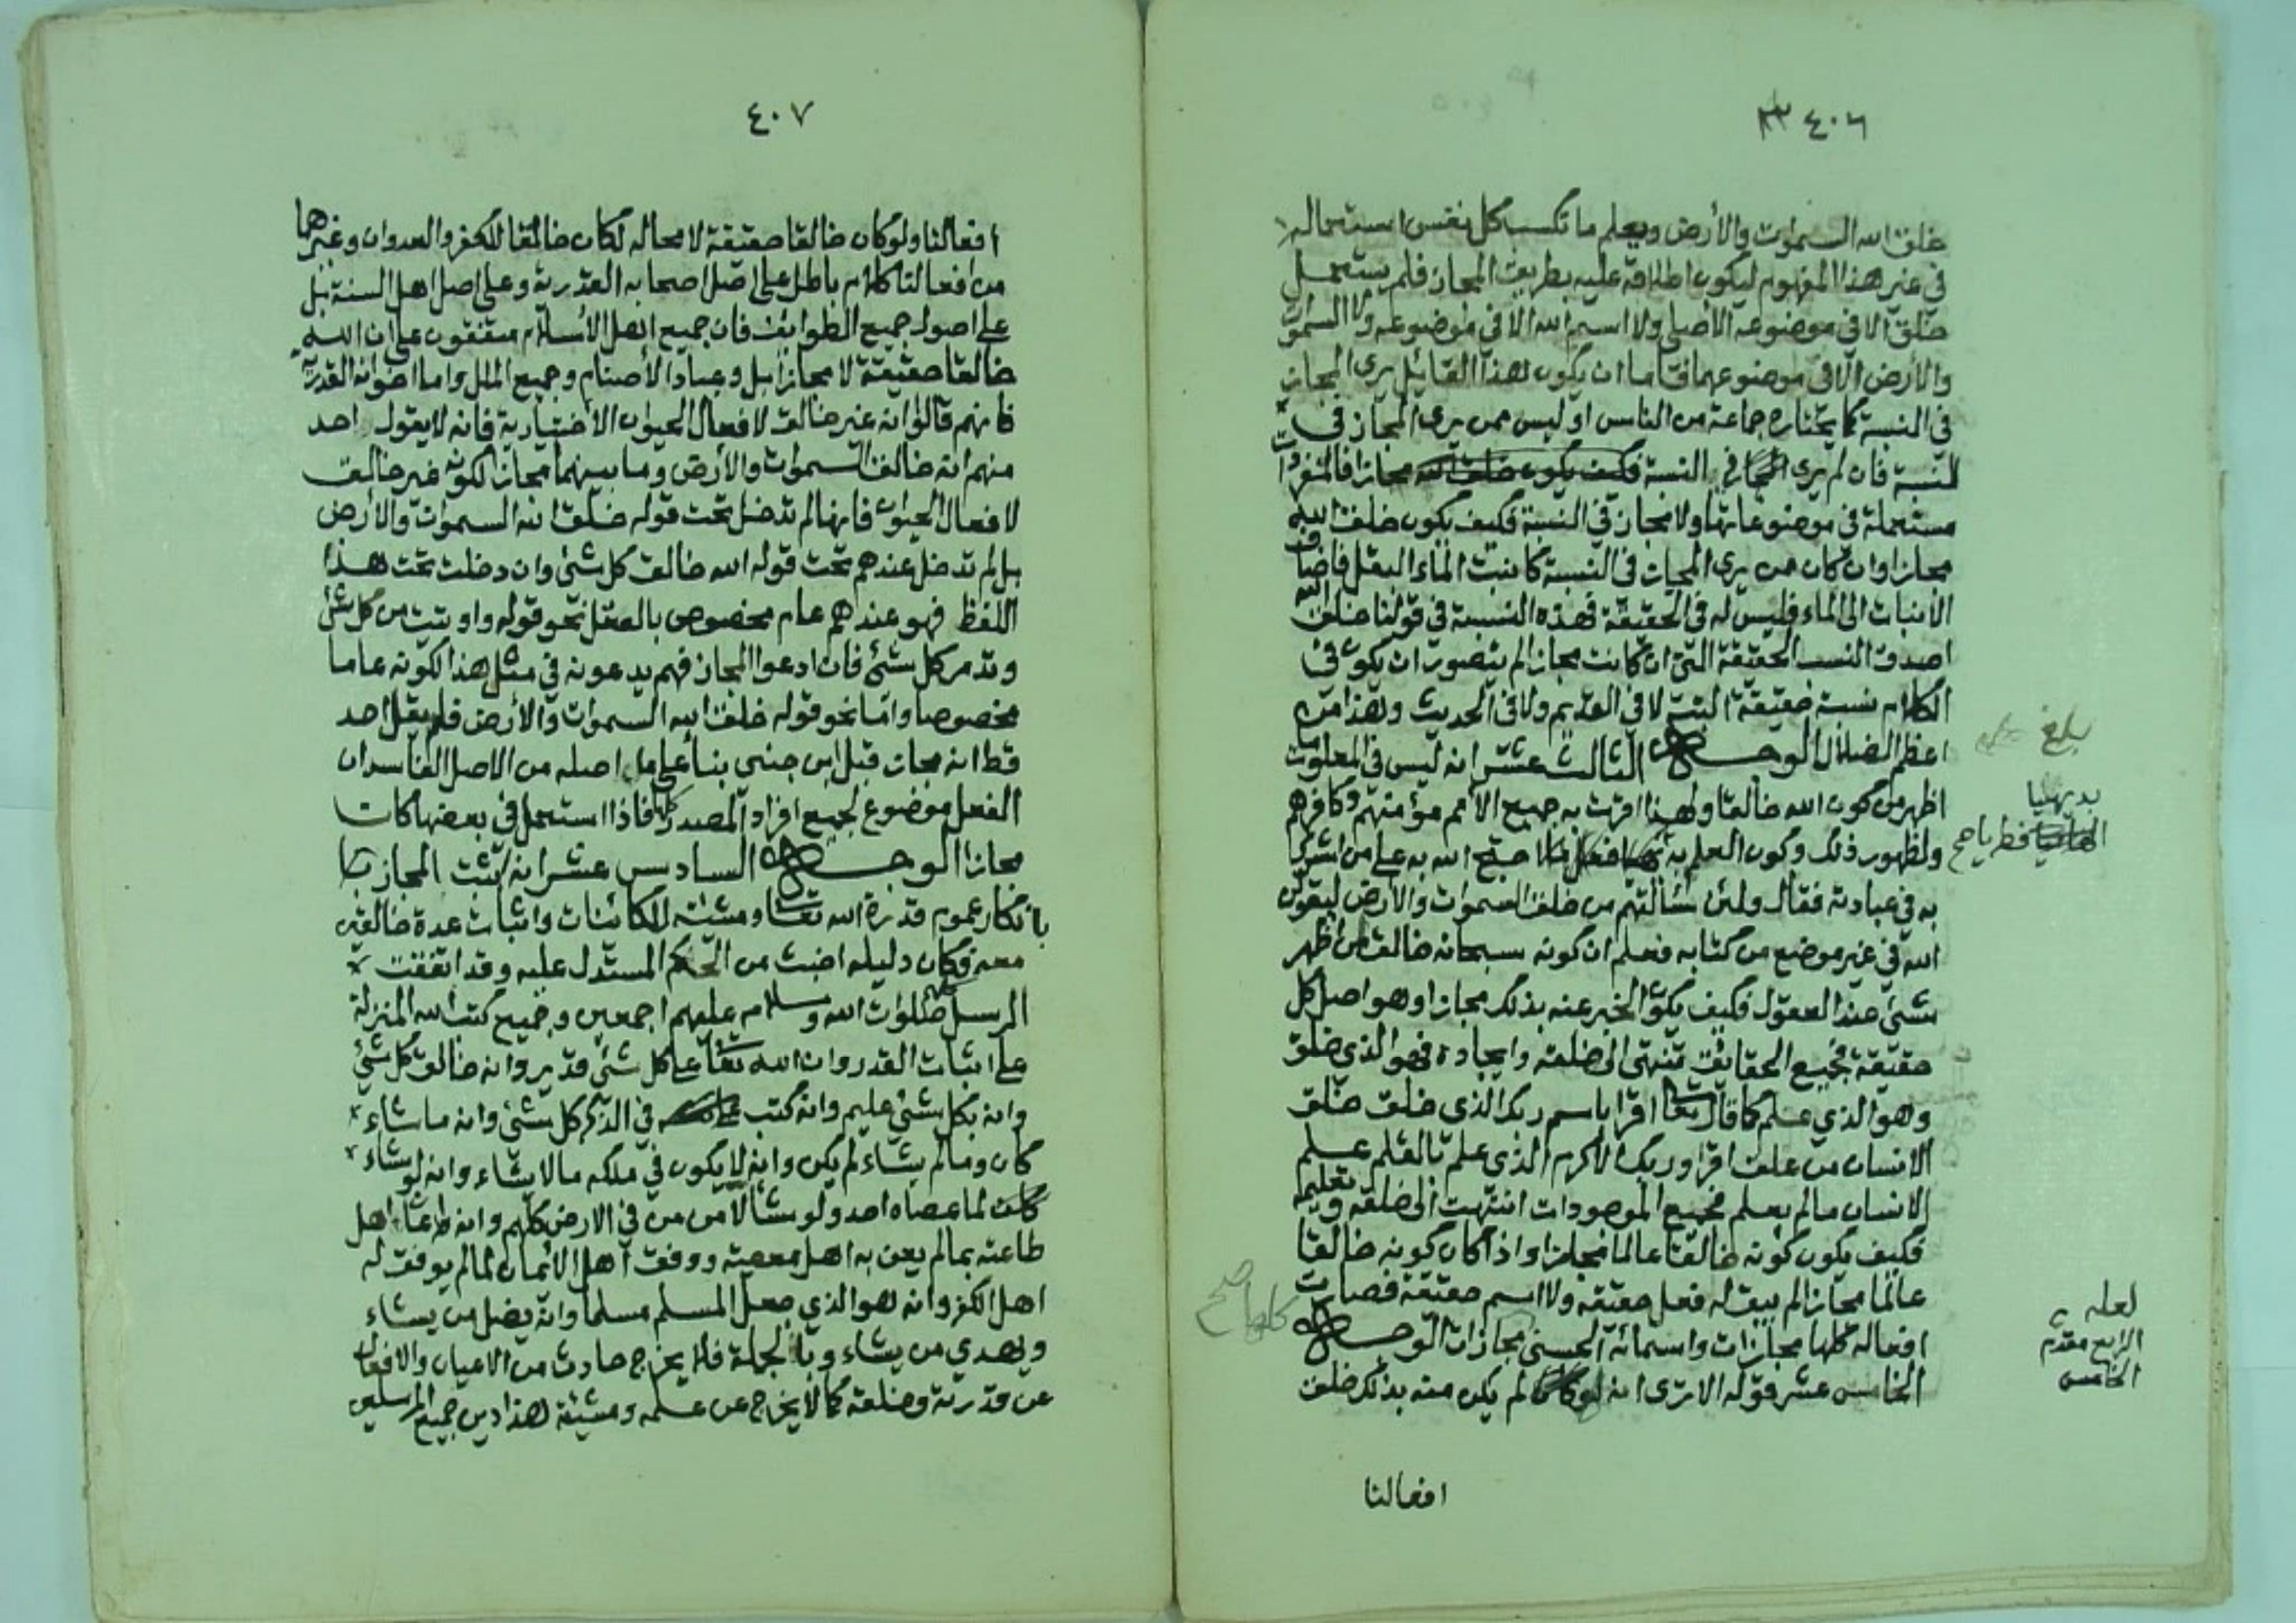 ٤٠٦
خلق الله السموات والأرض ويعلم ما تكسب كل نفس استعماله
في غير هذا المفهوم ليكون اطلاقه عليه بطريق المجاز فلم يستعمل
خلق الا في موضوعه الأصلي ولا اسم الله الا في موضوعه ولا السموات
والأرض الا في موضوعهما فاما ان يكون لهذا القائل يرى المجاز
في النسبة كما يختاره جماعة من الناس او ليس ممن يرى المجاز في
النسبة فان لم يرى المجاز في النسبة فكيف يكون خلق الله مجازا فالمفردات
مستعملة في موضوعاتها ولا مجاز في النسبة فكيف يكون خلق الله
مجازا وان كان من يرى المجاز في النسبة كانبت الماء البقل فاضاف
الانبات الى الماء فليس له في الحقيقة فهذه النسبة في قولنا خلق الله
اصدق النسب الحقيقة التي ان كانت مجازا لم يتصور ان يكون في
الكلام نسبة حقيقة البتة لا في القديم ولا في الحديث وهذا من
اعظم الضلال الوجه الثالث عشر انه ليس في المعلومات
اظهر من كون الله خالقا ولهذا اقرت به جميع الأمم مؤمنهم وكافرهم
ولظهور ذلك وكون العلم به احتج الله به على من اشرك
به في عبادته فقال ولئن سألتهم من خلق السموات والأرض ليقولن
الله في غير موضع من كتابه فعلم ان كونه سبحانه خالق من اظهر
شيء عند العقول فكيف يكون الخبر عنه بذلك مجازا وهو اصل كل
حقيقة فجميع الحقائق تنتهي الى خلقه وايجاده فهو الذي خلق
وهو الذي علم كما قال تعا اقرا باسم ربك الذي خلق خلق
الانسان من علق اقرا وربك الاكرم الذي علم بالقلم علم
الانسان مالم يعلم فجميع الموجودات انتهت الى خلقه وتعليمه
فكيف يكون كونه خالقا عالما مجازا واذا كان كونه خالقا
عالما مجازا لم يبق له فعل حقيقه ولا اسم حقيقة فصارت
افعاله كلها مجازات واسمائه الحسنى مجازات الوجه
الخامس عشر قوله الا ترى انه لو كان لم يكن منه بذلك خلق
افعالنا
بلغ
بديهيا
فطريا صح
لعله
الرابع مقدم
الخامس
كلها صح
٤٠٧
افعالنا ولو كان خالقا حقيقة لا محاله لكان خالقا للكفر والعدوان وغيرهما
من افعالنا كلام باطل على اصل اصحابه القدرية وعلى اصل اهل السنة بل
على اصول جميع الطوائف فان جميع اهل الأسلام متفقون على ان الله
خالقا حقيقة لا مجازا بل وعباد الأصنام وجميع الملل واما اخوانه القدرية
فانهم قالوا انه غير خالق لافعال الحيوان الأختيارية فانه لا يقول احد
منهم انه خالق السموات والأرض وما بينهما مجازا لكونه غير خالق
لافعال الحيوان فانها لم تدخل تحت قوله خلق الله السموات والأرض
بل لم تدخل عندهم تحت قوله الله خالق كل شئ وان دخلت تحت هذا
اللفظ فهو عندهم عام مخصوص بالعقل نحو قوله واوتيت من كل شئ
وتدمر كل شئ فان ادعوا المجاز فهم يدعونه في مثل هذا لكونه عاما
مخصوصا واما نحو قوله خلق الله السموات والأرض فلم يقل احد
قط انه مجاز قبل ابن جني بناء على ما اصله من الاصل الفاسد ان
الفعل موضوع لجميع افراد المصدر كلها فاذا استعمل في بعضها كان
مجازا الوجه السادس عشر انه يثبت المجاز
بانكار عموم قدرة الله تعا ومشيئته للكائنات واثبات عدة خالقين
معه وكان دليله اخبث من الحكم المستدل عليه وقد اتفقت
الرسل كلهم صلوات الله وسلامه عليهم اجمعين وجميع كتب الله المنزلة
على اثبات القدر وان الله تعا على كل شئ قدير وانه خالق كل شئ
وانه بكل شئ عليم وانه كتب في الذكر كل شئ وانه ما شاء
كان ومالم يشاء لم يكن وانه لا يكون في ملكه مالا يشاء وانه لو شاء
لما عصاه احد ولو شاء لآمن من في الارض كلهم وانه اعان اهل
طاعته بمالم يعن به اهل معصيته ووفق اهل الأيمان لما لم يوفق له
اهل الكفر وانه هو الذي جعل المسلم مسلما وانه يضل من يشاء
ويهدي من يشاء وبالجملة فلا يخرج حادث من الاعيان والافعال
عن قدرته وخلقه كما لا يخرج عن علمه ومشيئته هذا دين جميع المرسلين